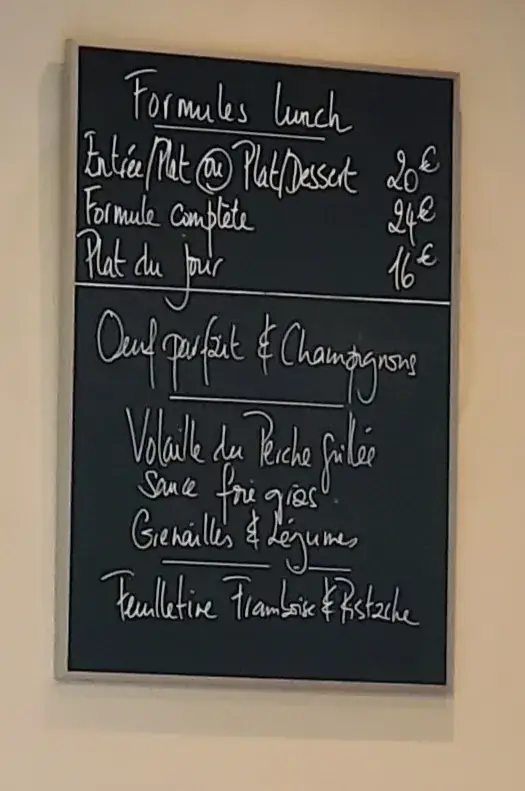 Formules lunch
Entrée/Plat ou Plat/Dessert 20€
Formule complète 24€
Plat du jour 16€
Oeuf parfait & Champignons
Volaille du Perche grillée
Sauce foie gras.
Grenailles & Légumes
Feuilletine Framboise & Pistache